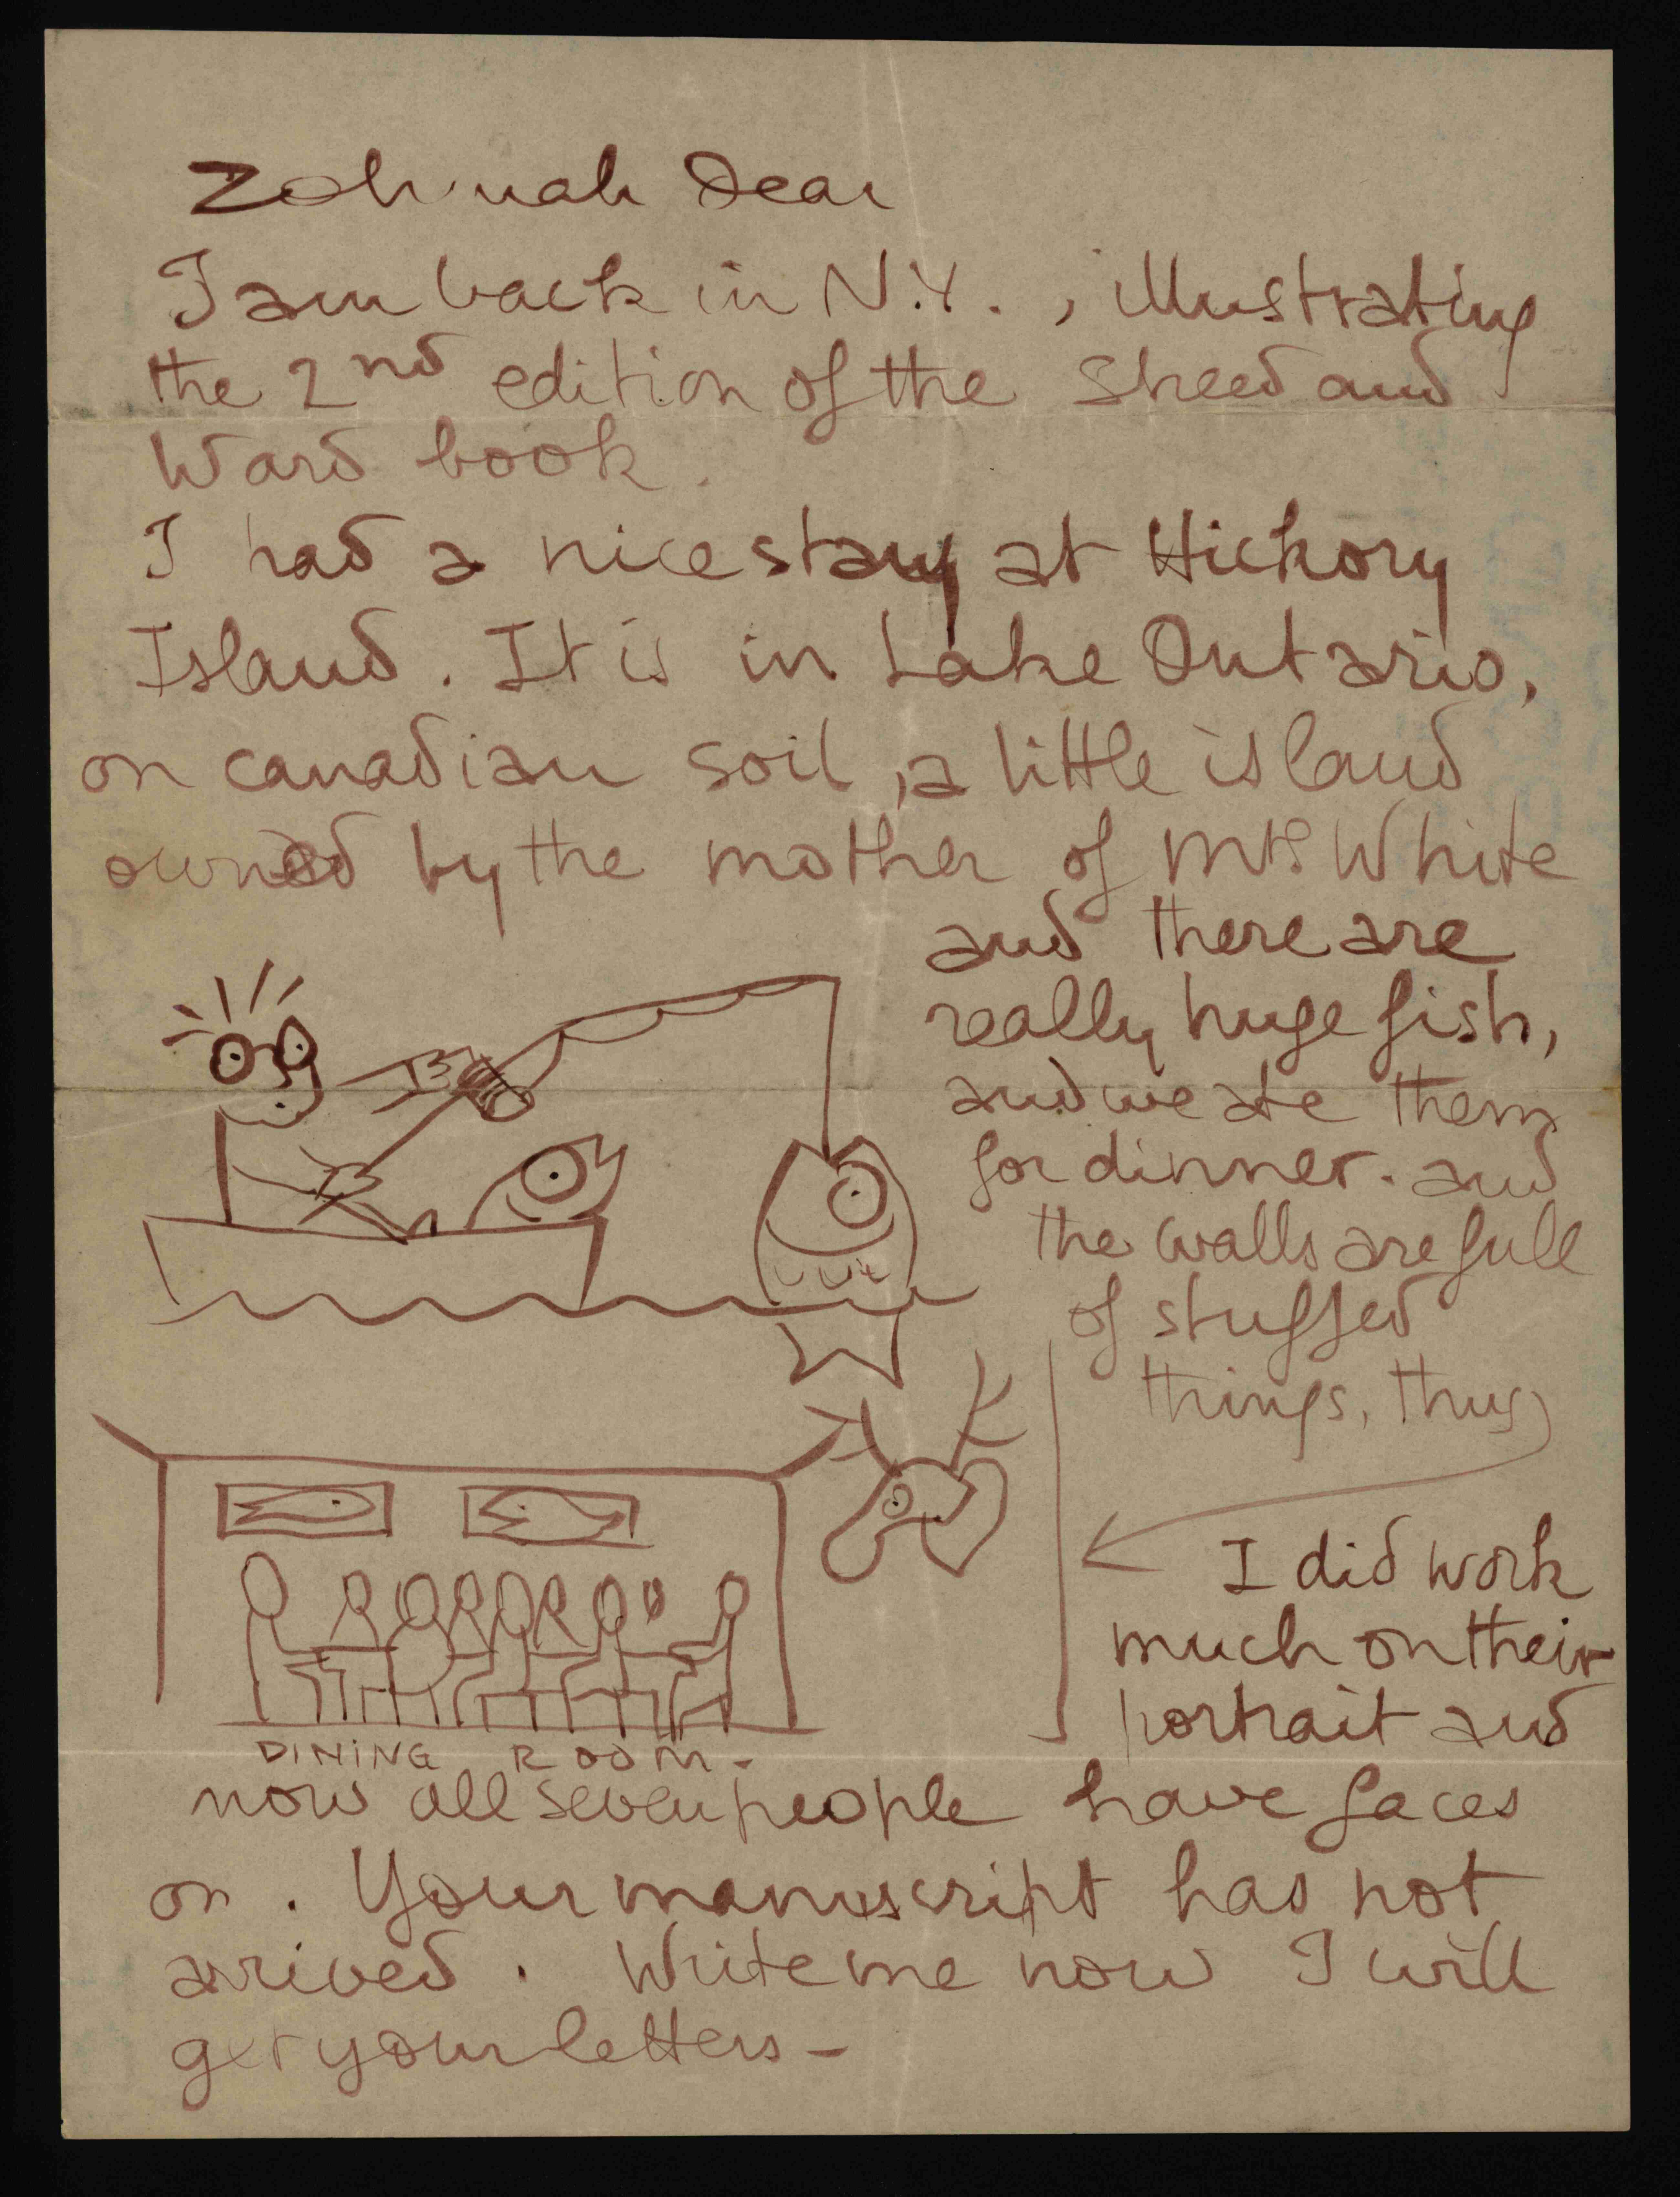 Zohmah Dear
I am back in N.Y., illustrating
the 2nd edition of the Sheed and
Ward book.
I had a nice stay at Hickory
Island. It is in Lake Ontario,
on canadian soil, a little island
owned by the mother of Mrs White
and there are
really huge fish,
and we ate them
for dinner. and
the walls are full
of stuffed
things, thus
DINING ROOM -
I did work
much on their
portrait and
now all seven people have faces
on. Your manuscript has not
arrived. Write me now I will
get your letters -